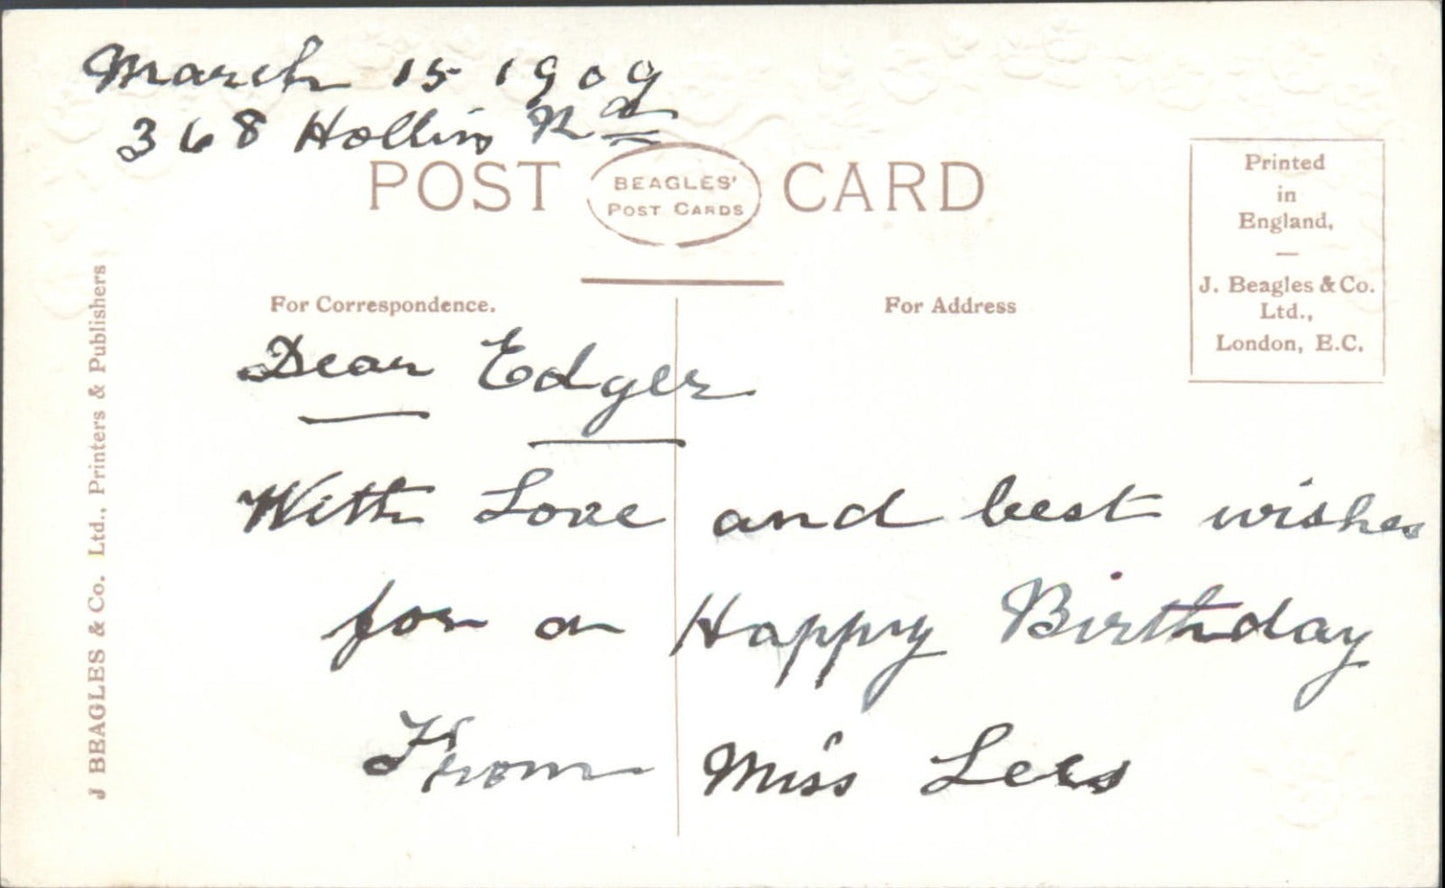 March 15 1909
368 Hollins Rd
POST CARD
BEAGLES'
POST CARDS
Printed
in
England,
—
J. Beagles & Co.
Ltd.,
London, E.C.
For Correspondence.
For Address
Dear Edger
With Love and best wishes
for a Happy Birthday
From Miss Lees
J BEAGLES & Co. Ltd., Printers & Publishers